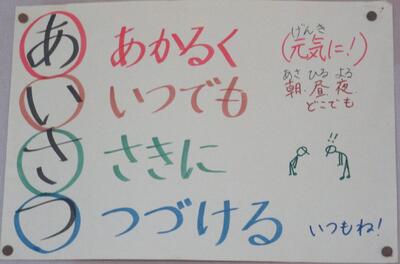 あ あかるく (元気に!)
げんき
い いつでも 朝・昼・夜
あさ ひる よる
どこでも
さ さきに !!
つ つづける いつもね!